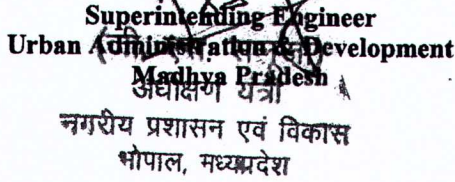 Superintending Engineer
Urban Administration & Development
Madhya Pradesh
अधीक्षण यंत्री
नगरीय प्रशासन एवं विकास
भोपाल, मध्यप्रदेश